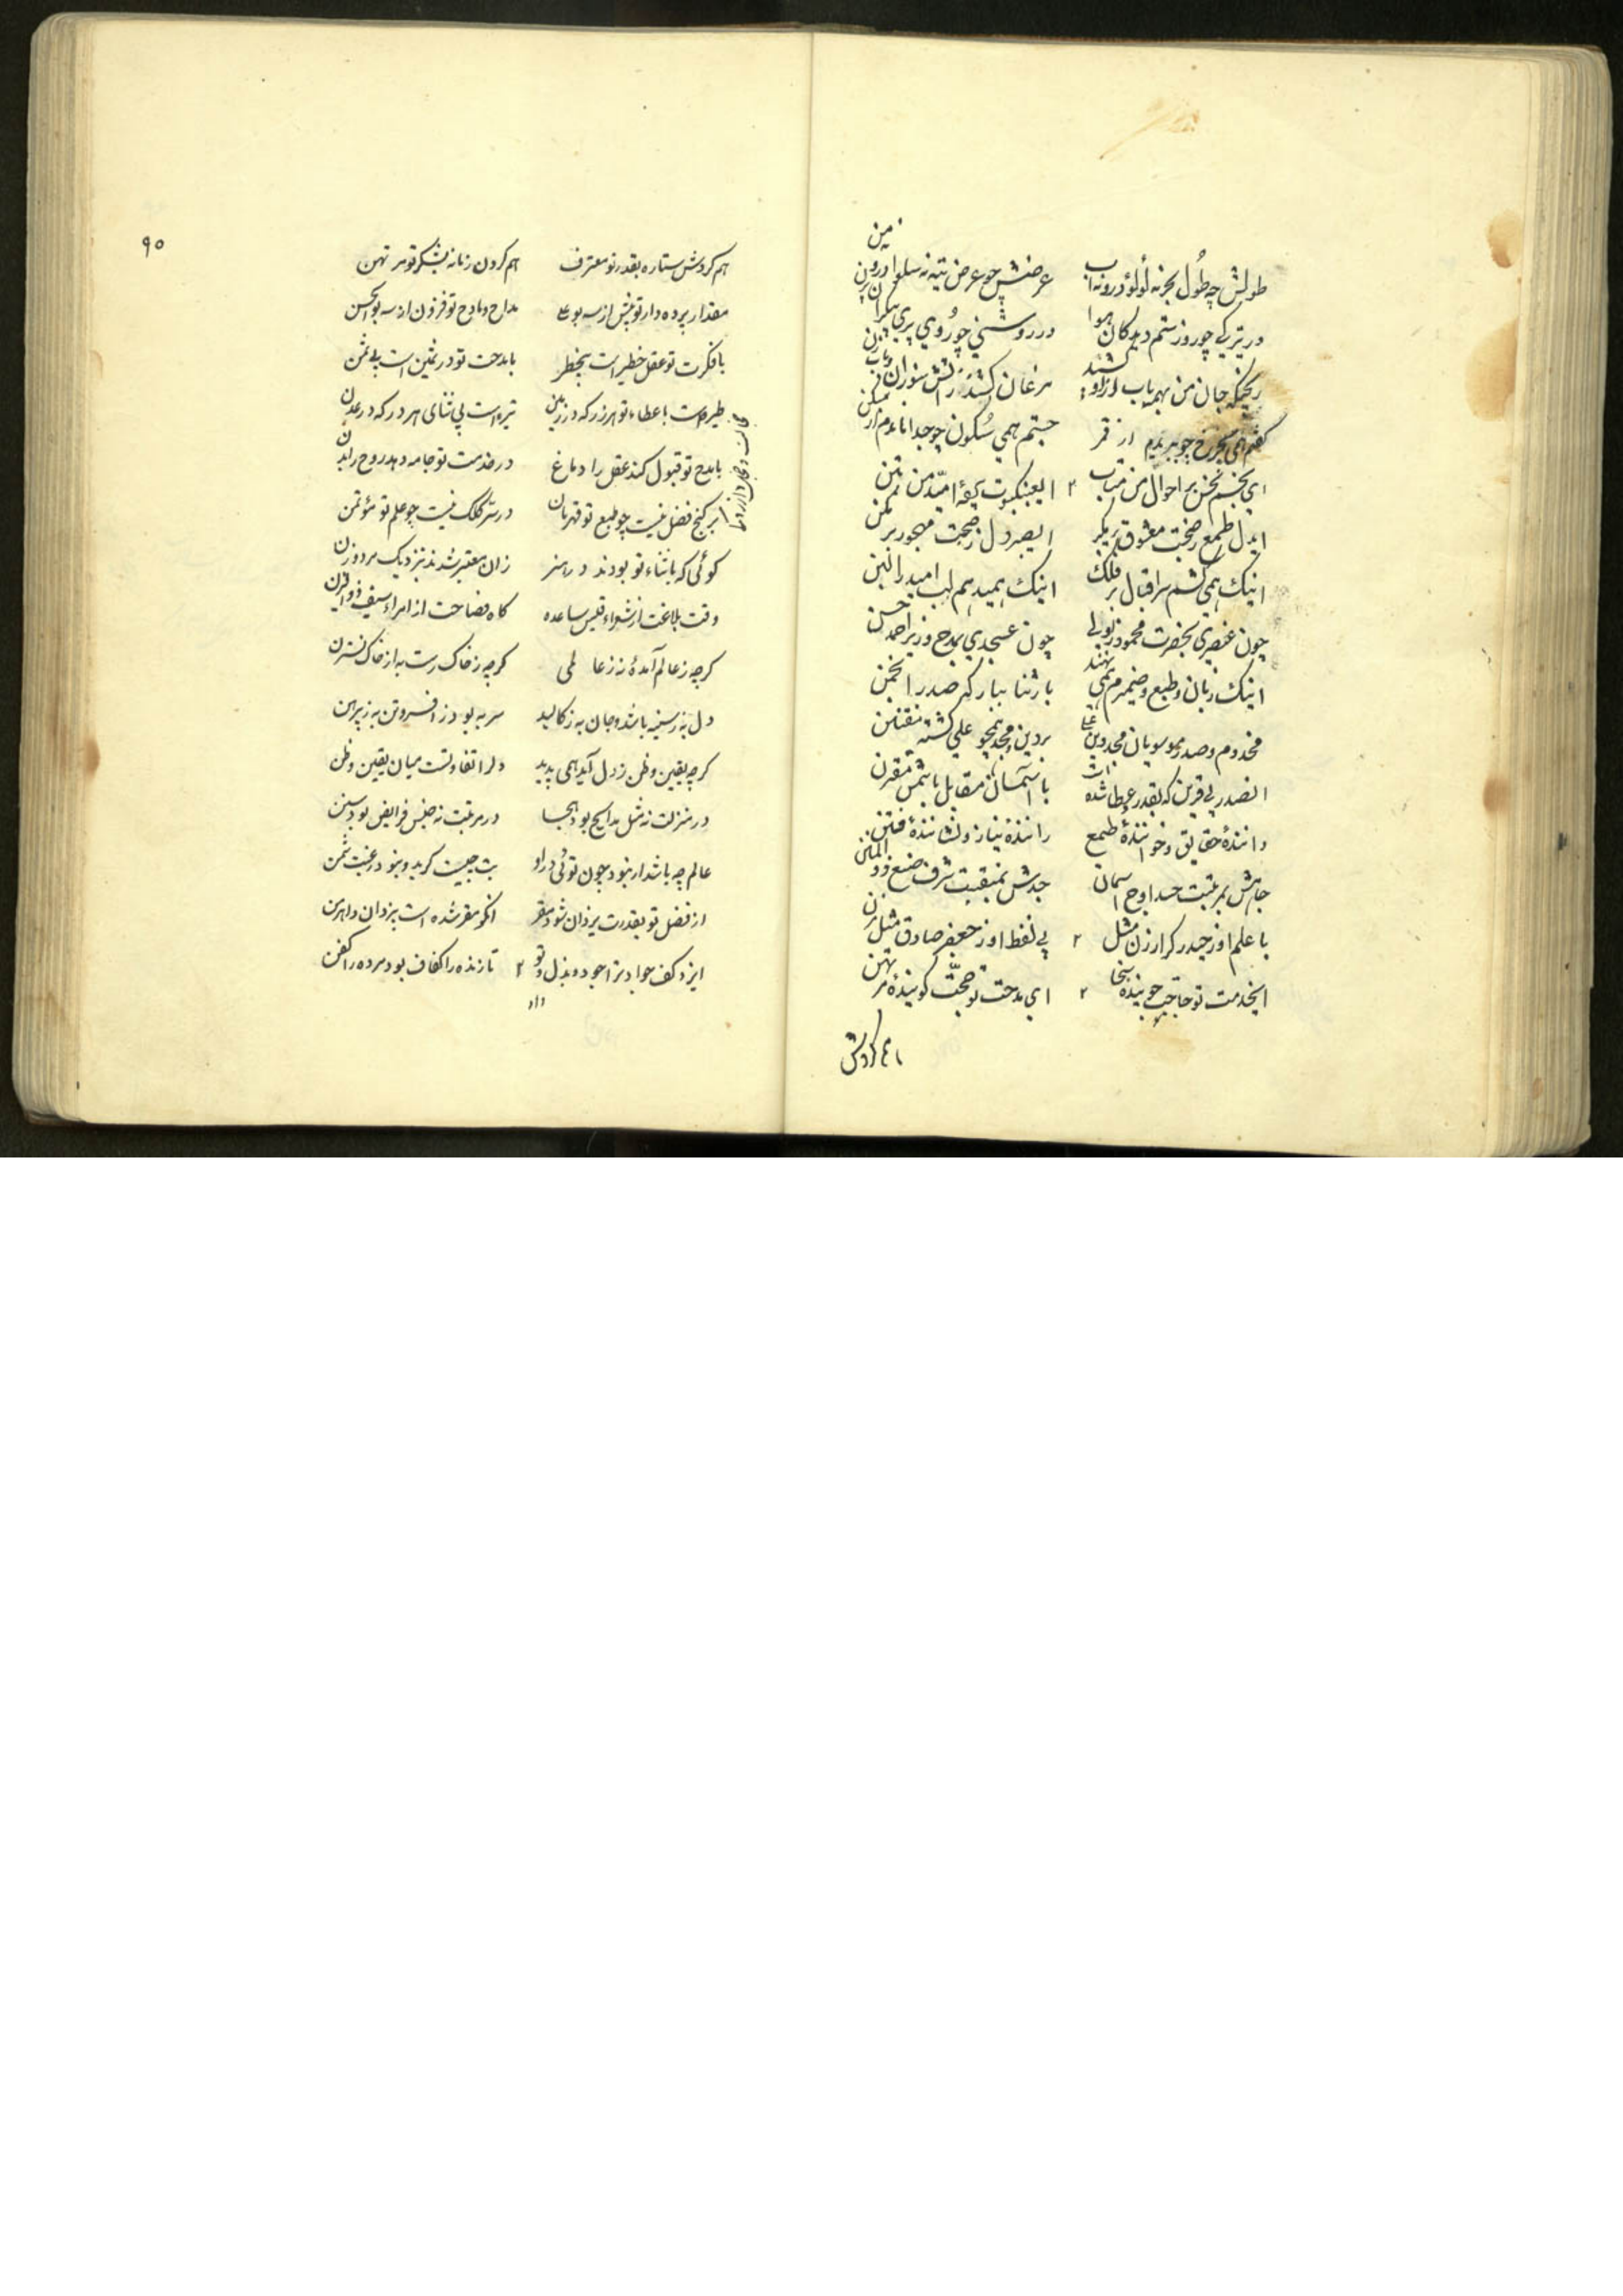 طولش چه طول بحر نه لؤلؤ درو نه آب عرضش چو عرض تیه نه سلوا درو نه من
در تیرگی چو روز ستم دیدگان هوا در روشنی چو روی پری پیکران
ریگیکه جان من بهمه باب ازاو مرغان کشند زآتش سوزان
گفتم همی بچرخ چو ببریدم از قمر جستم همی سکون چو جدا ماندم از
ای بخششم نحس بر احوال من متاب ای عنکبوت کیهٔ امید من متن
ایدل طمع ز صحبت معشوق بر مگیر ای صبر دل ز صحبت مهجور بر مکن
اینک همی کشم سر اقبال بر فلک اینک همیدهم لب امید را لبن
چون عنصری بحضرت محمود زابولی چون عسجدی بمدح وزیر احمد حسن
اینک زبان و طبع و ضمیرم همی نهند بار ثنا ببارگه صدر انجمن
مخدوم و صدر موسویان مجد دین علی بر دین و مجد همچو علی گشته مفتنن
آنصدر بی قرین که بقدر و عطا شده است با آسمان مقابل با شمس مقترن
دانندهٔ حقایق و خوانندهٔ طمع رانندهٔ نیاز و نشانندهٔ فتن
جاهش بمرتبت حسد اوج آسمان جدش بمنقبت شرف صنع ذوالمنن
با علم او ز حیدر کرار زن مثل بی لفظ او ز جعفر صادق مثل مزن
ایخدمت تو حاجت جویندهٔ سخا ای مدحت تو حجت گویندهٔ
هم گردش
۹۰
هم گردش ستاره بقدر تو معترف هم گردن زمانه بشکر تو مرتهن
مقدار پرده دار تو بیش از سه بوعلی مداح و مادح تو فزون از سه بوالحسن
با فکرت تو عقل خطیر است بیخطر با مدحت تو در ثمین است بی ثمن
طیره است با عطاء تو هر زر که در زمین تیره است بی ثنای هر در که در عدن
با مدح تو قبول کند عقل را دماغ در خدمت تو جامه دهد روح را بدن
بر گنج فضل نیست چو طبع تو قهرمان در ستر کلک نیست چو علم تو مؤتمن
گوئی که با ثناء تو بودند در هنر زان معتبر شدند بنزدیک مرد و زن
وقت بلاغت از شعراء قیس ساعده گاه فصاحت از امراء سیف ذوالیزن
گرچه ز عالم آمدهٔ نز عالمی گرچه ز خاک رست به از خاک نسترن
دل به ز سینه باشد و جان به ز کالبد سر به بود ز افسر و تن به ز پیرهن
گرچه یقین و ظن ز دل آید همی پدید دلرا تفاوتست میان یقین و ظن
در منزلت نه مثل مدایح بود هجا در مرتبت نه جنس فرایض بود سنن
عالم چه باشد ار نبود چون توئی در او بت چیست گر بدو نبود رغبت شمن
از فضل تو بقدرت یزدان شود مقر آنکو مقر شده است بیزدان و اهرمن
ایزد کف جواد ترا جود و بذل تا زنده را کفاف بود مرده را کفن